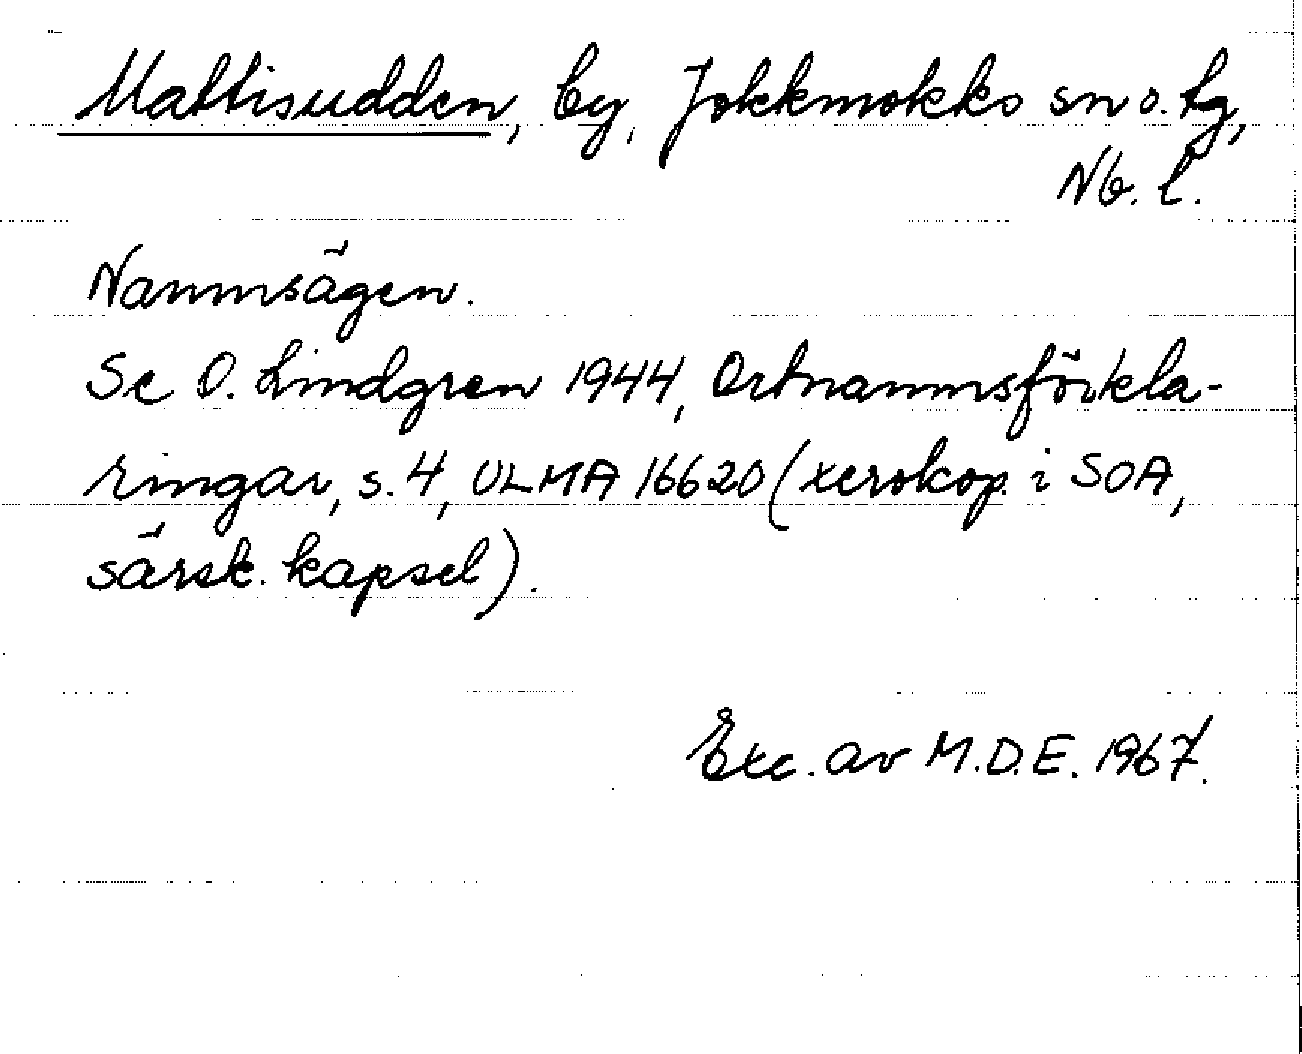 Mattisudden, by, Jokkmokks sn o. tg,
Nb. l.
Namnsägen.
Se O. Lindgren 1944, Ortnamnsförkla-
ringar, s. 4, ULMA 16620 (xerokop. i SOA,
särsk. kapsel).
Exc. av M.D.E. 1967.